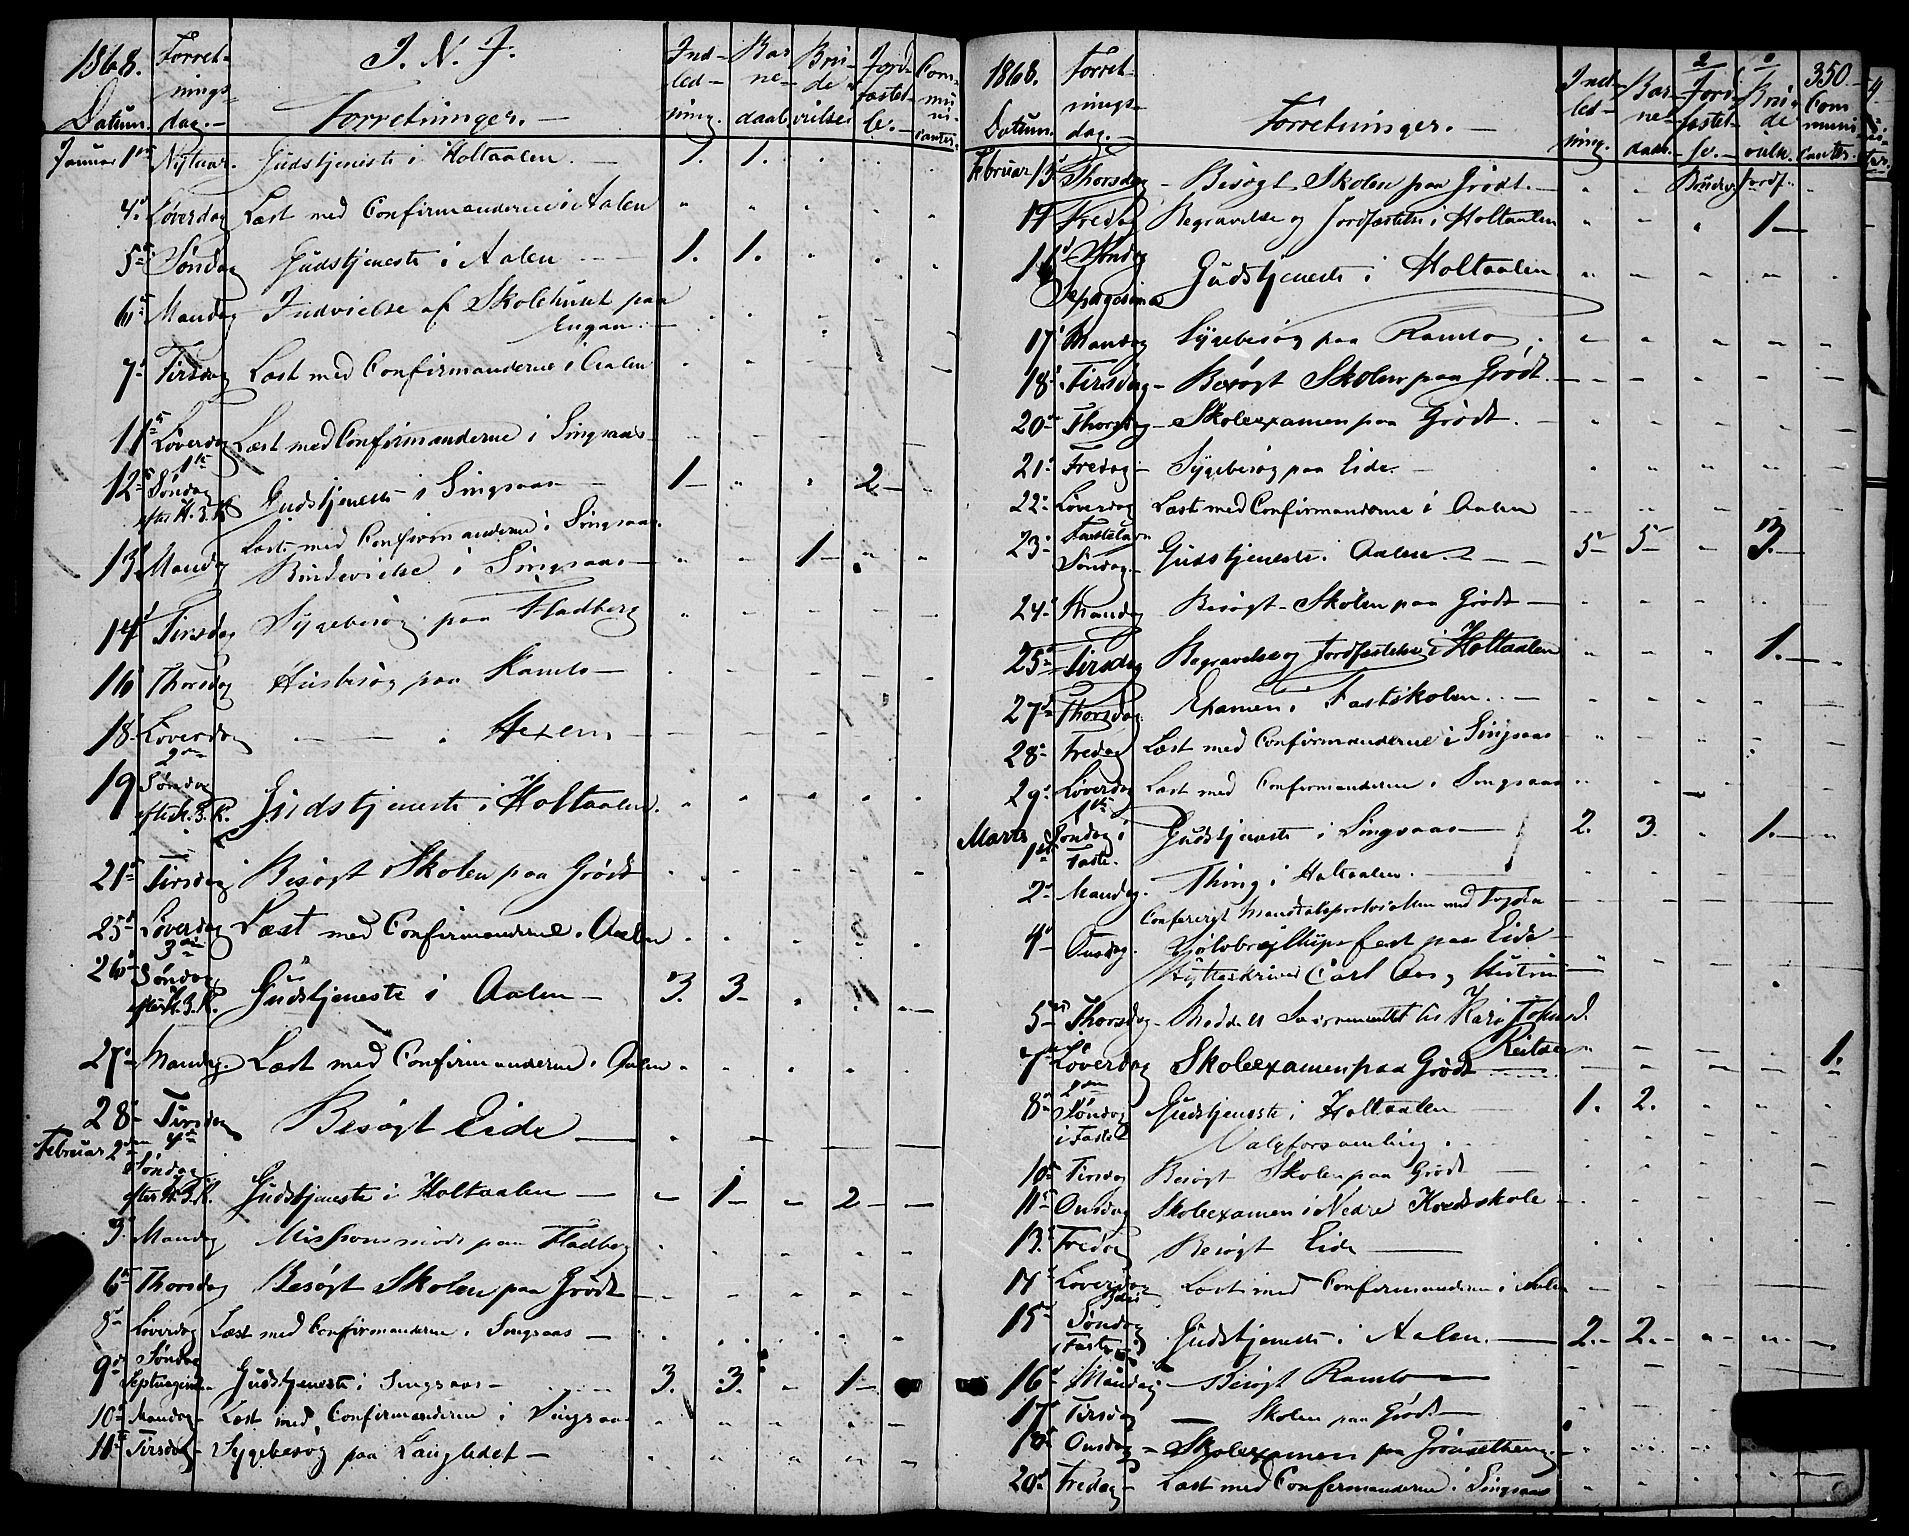 1868. Forret- I. N. J. Ind- Bar- Bru- Jord- Com-
nings- led- ne- de- fæstel- mu-
Datum. dag. Forretninger. ning. daab. vielse. se. ni-
canter.
Januar 1ste Nytaar. Gudstjeneste i Holtaalen. 1. 1.
4. Løverdag Læst med Confirmanderne i Aalen
5. Søndag Gudstjeneste i Aalen 1. 1.
6. Mandag Indvielse af Skolehuset paa
Engan.
7. Tirsdag Læst med Confirmanderne i Aalen
11. Løverdag Læst med Confirmanderne i Singsaas
12. 1ste Søndag efter H. 3. K. Gudstjeneste i Singsaas 1 2
Læst med Confirmanderne i Singsaas
13. Mandag Brudevielse i Singsaas 1
14. Tirsdag Sygebesøg paa Fladberg
16 Thorsdag Husbesøg paa Ramlo
18. Løverdag — — Hexem
19 2den Søndag efter H. 3. K. Gudstjeneste i Holtaalen
21. Tirsdag Besøgt Skolen paa Grødt
25. Løverdag Læst med Confirmanderne i Aalen
26. 3die Søndag efter H. 3. K. Gudstjeneste i Aalen 3. 3
27. Mandag Læst med Confirmanderne i Aalen
28. Tirsdag Besøgt Eide
Februar 2den 4de Søndag
efter H. 3. K. Gudstjeneste i Holtaalen 1 2
3. Mandag Missionsmøde paa Fladberg
6. Thorsdag Besøgt Skolen paa Grødt
8. Løverdag Læst med Confirmanderne i Singsaas
9. Søndag Septuagesima Gudstjeneste i Singsaas 3. 3. 1
10. Mandag Læst med Confirmanderne i Singsaas
11. Tirsdag Sygebesøg paa Langledet
1868. Forret- Ind- Bar- Jord- Bru- 350
nings- led- ne- fæstel- de- Com-
Datum. dag. Forretninger. ning. daab. se. vielse. muni-
canter.
Februar 13. Thorsdag Besøgt Skolen paa Grødt. Brudev. Jordf.
14 Fredag Begravelse og Jordfæstelse i Holtaalen 1
16 Søndag Gudstjeneste i Holtaalen
17. Mandag Sygebesøg paa Ramlo
18. Tirsdag Besøgt Skolen paa Grødt.
20. Thorsdag Skoleexamen paa Grødt.
21. Fredag Sygebesøg paa Eide.
22. Løverdag Læst med Confirmanderne i Aalen
23. Fastelavn Søndag Gudstjeneste i Aalen. 5 5 3.
24. Mandag Besøgt Skolen paa Grødt
25. Tirsdag Begravelse og Jordfæstelse i Holtaalen 1.
27. Thorsdag Examen i Fastskolen.
28. Fredag Læst med Confirmanderne i Singsaas
29. Løverdag Læst med Confirmanderne i Singsaas
Marts 1ste 1ste Søndag i Faste. Gudstjeneste i Singsaas 2. 3. 1.
2. Mandag. Thing i Holtaalen.
Confereret Mandtalsprotocollen med Fogden
4. Onsdag. Sølvbryllupsfest paa Eide
Hytteskriver Carl Aas og Hustru
5. Thorsdag Meddelt Sacramentet til Kari Johnsd.
Reitan 1.
7. Løverdag Skoleexamen paa Grødt
8. 2den Søndag i Faste Gudstjeneste i Holtaalen 1. 2.
Valgforsamling.
10. Tirsdag Besøgt Skolen paa Grødt
11. Onsdag Skoleexamen i Nedre Kredsskole
13. Fredag Besøgt Eide
14 Løverdag Læst med Confirmanderne i Aalen
15. 3die Søndag i Faste Gudstjeneste i Aalen. 2. 2.
16. Mandag Besøgt Ramlo
17. Tirsdag — Skolen paa Grødt
18. Onsdag Skoleexamen paa
20. Fredag Læst med Confirmanderne i Singsaas